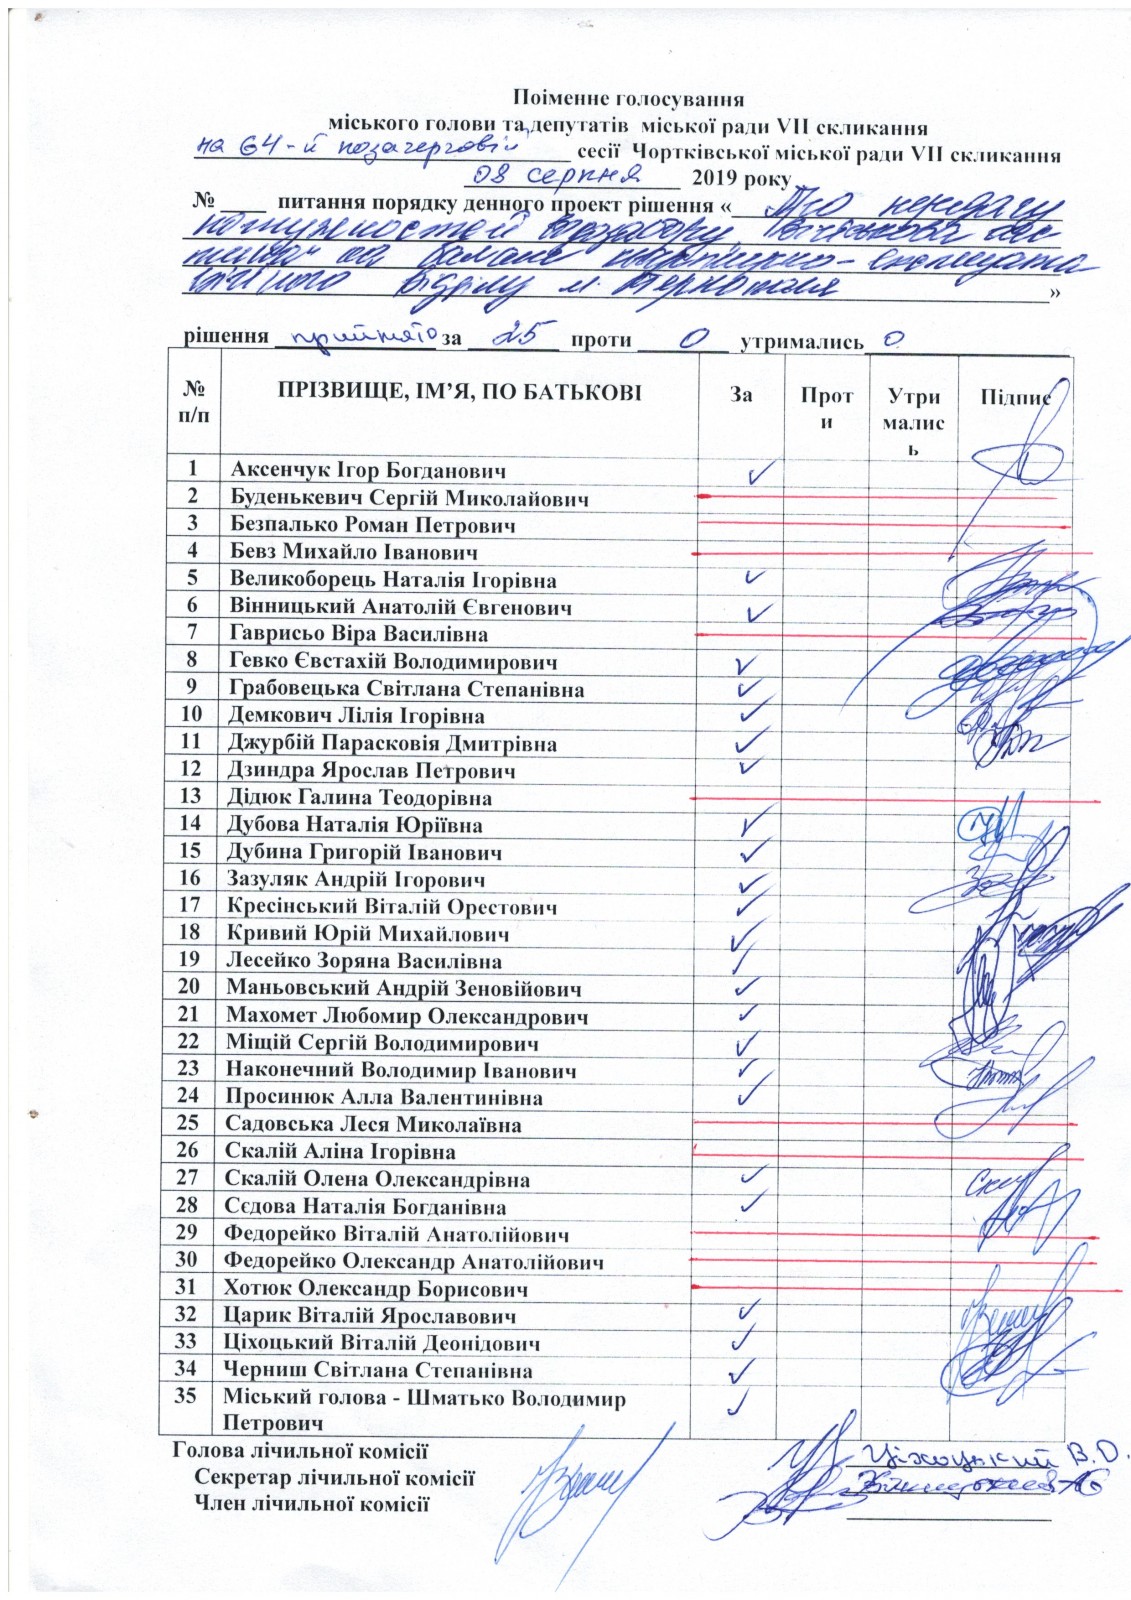 Поіменне голосування
міського голови та депутатів міської ради VII скликання
на 64-й позачерговій сесії Чортківської міської ради VII скликання
08 серпня 2019 року
№ питання порядку денного проект рішення « Про передачу
потужностей водозабору
на баланс
відділу м. Тернополя »
рішення прийнято за 25 проти 0 утримались 0
№ п/п ПРІЗВИЩЕ, ІМ’Я, ПО БАТЬКОВІ За Проти Утрималися Підпис
1 Аксенчук Ігор Богданович ✓
2 Буденькевич Сергій Миколайович
3 Безпалько Роман Петрович
4 Бевз Михайло Іванович
5 Великоборець Наталія Ігорівна ✓
6 Вінницький Анатолій Євгенович ✓
7 Гаврисьо Віра Василівна
8 Гевко Євстахій Володимирович ✓
9 Грабовецька Світлана Степанівна ✓
10 Демкович Лілія Ігорівна ✓
11 Джурбій Парасковія Дмитрівна ✓
12 Дзиндра Ярослав Петрович ✓
13 Дідюк Галина Теодорівна
14 Дубова Наталія Юріївна ✓
15 Дубина Григорій Іванович ✓
16 Зазуляк Андрій Ігорович ✓
17 Кресінський Віталій Орестович ✓
18 Кривий Юрій Михайлович ✓
19 Лесейко Зоряна Василівна ✓
20 Маньовський Андрій Зеновійович ✓
21 Махомет Любомир Олександрович ✓
22 Міщій Сергій Володимирович ✓
23 Наконечний Володимир Іванович ✓
24 Просинюк Алла Валентинівна ✓
25 Садовська Леся Миколаївна
26 Скалій Аліна Ігорівна
27 Скалій Олена Олександрівна ✓
28 Сєдова Наталія Богданівна ✓
29 Федорейко Віталій Анатолійович
30 Федорейко Олександр Анатолійович
31 Хотюк Олександр Борисович
32 Царик Віталій Ярославович ✓
33 Ціхоцький Віталій Деонідович ✓
34 Черниш Світлана Степанівна ✓
35 Міський голова - Шматько Володимир ✓
Петрович
Голова лічильної комісії Ціхоцький В.О.
Секретар лічильної комісії
Член лічильної комісії